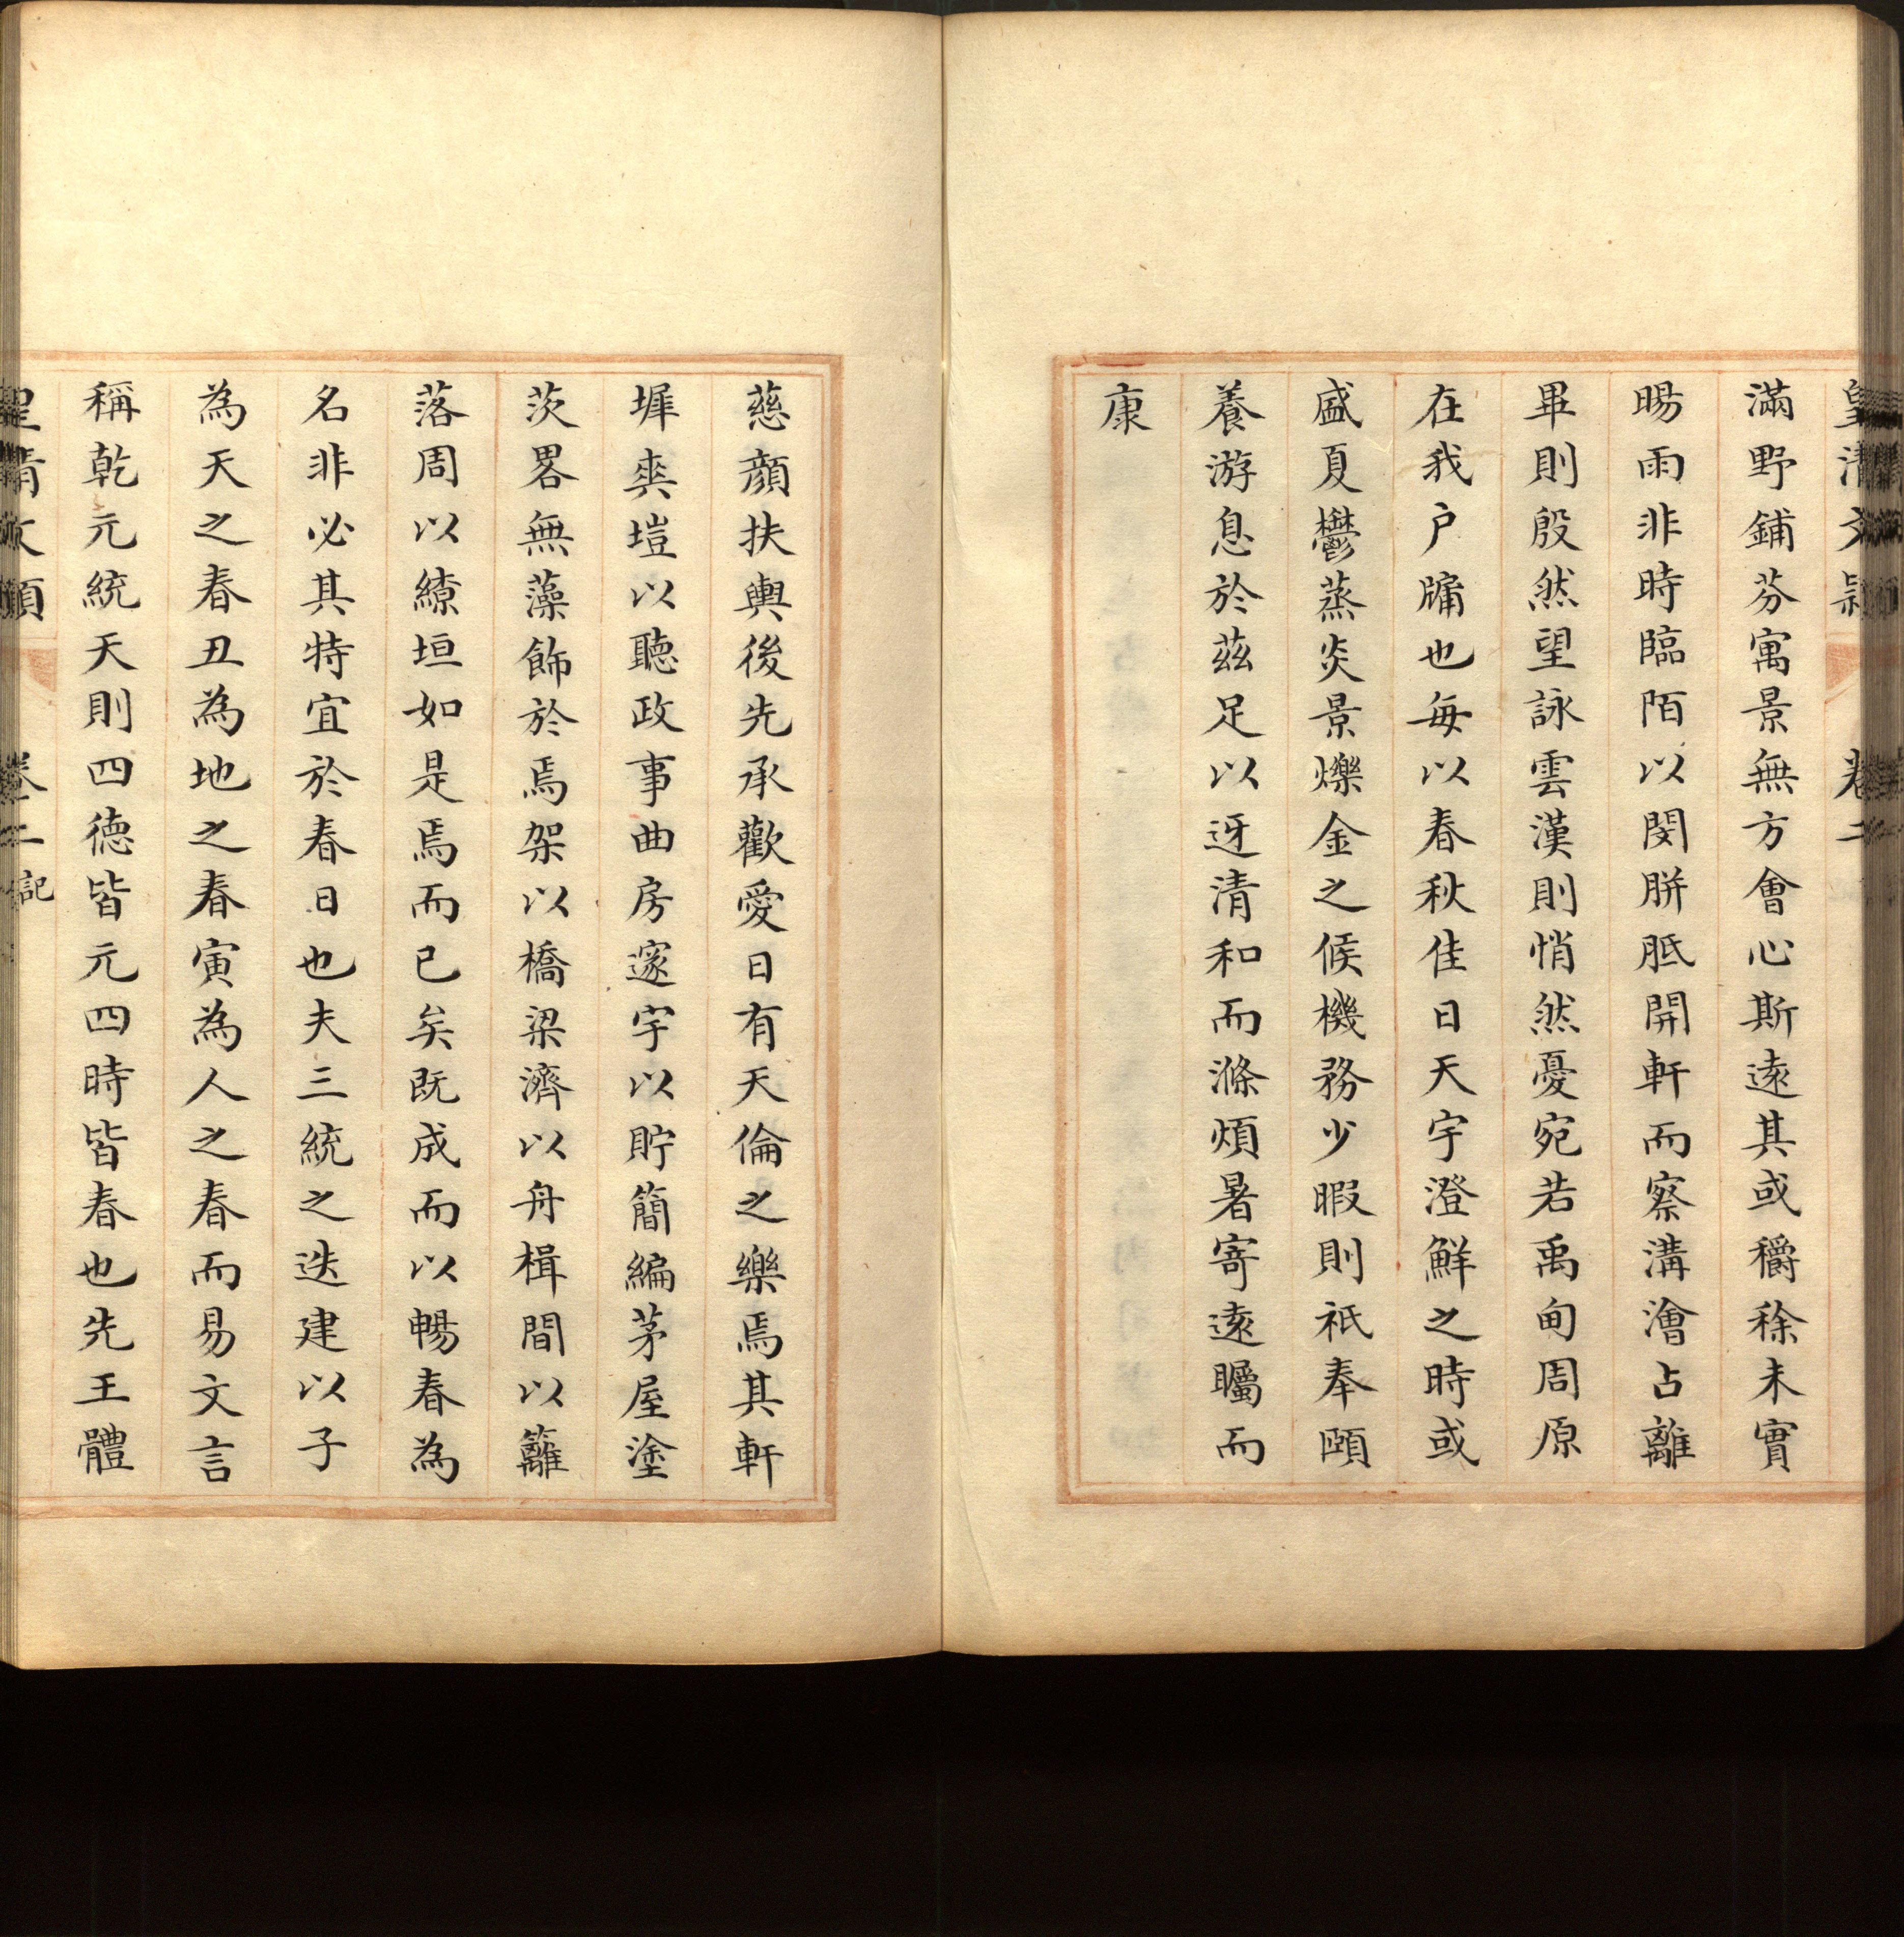 皇清文穎 卷二
滿野鋪芬寓景無方會心斯遠其或穱稌未實
暘雨非時臨陌以閔胼胝開軒而察溝澮占離
畢則殷然望詠雲漢則悄然憂宛若禹甸周原
在我户牖也每以春秋佳日天宇澄鮮之時或
盛夏鬱蒸炎景爍金之候機務少暇則祇奉頤
養游息於茲足以迓清和而滌煩暑寄遠矚而
康
慈顔扶輿後先承歡愛日有天倫之樂焉其軒
墀爽塏以聽政事曲房邃宇以貯簡編茅屋塗
茨畧無藻飾於焉架以橋梁濟以舟楫間以籬
落周以繚垣如是焉而已矣既成而以暢春為
名非必其特宜於春日也夫三統之迭建以子
為天之春丑為地之春寅為人之春而易文言
稱乾元統天則四德皆元四時皆春也先王體
皇清文穎 卷二 記